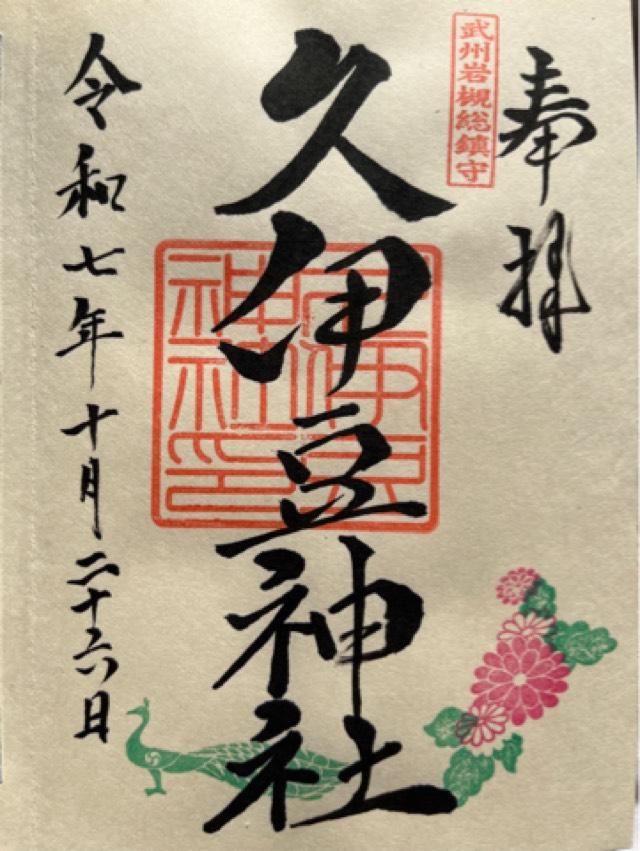 奉拝
武州岩槻総鎮守
久伊豆神社
久伊豆
神社印
令和七年十月二十六日